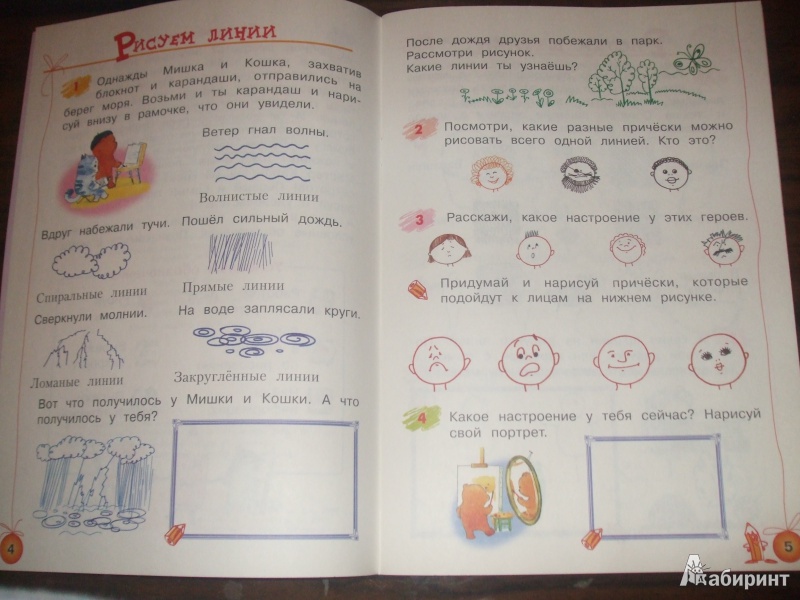 Рисуем линии
1 Однажды Мишка и Кошка, захватив
блокнот и карандаши, отправились на
берег моря. Возьми и ты карандаш и нари-
суй внизу в рамочке, что они увидели.
Ветер гнал волны.
Волнистые линии
Вдруг набежали тучи.
Спиральные линии
Пошёл сильный дождь.
Прямые линии
Сверкнули молнии.
Ломаные линии
На воде заплясали круги.
Закруглённые линии
Вот что получилось у Мишки и Кошки. А что
получилось у тебя?
4
После дождя друзья побежали в парк.
Рассмотри рисунок.
Какие линии ты узнаёшь?
2 Посмотри, какие разные причёски можно
рисовать всего одной линией. Кто это?
3 Расскажи, какое настроение у этих героев.
Придумай и нарисуй причёски, которые
подойдут к лицам на нижнем рисунке.
4 Какое настроение у тебя сейчас? Нарисуй
свой портрет.
5
Лабиринт